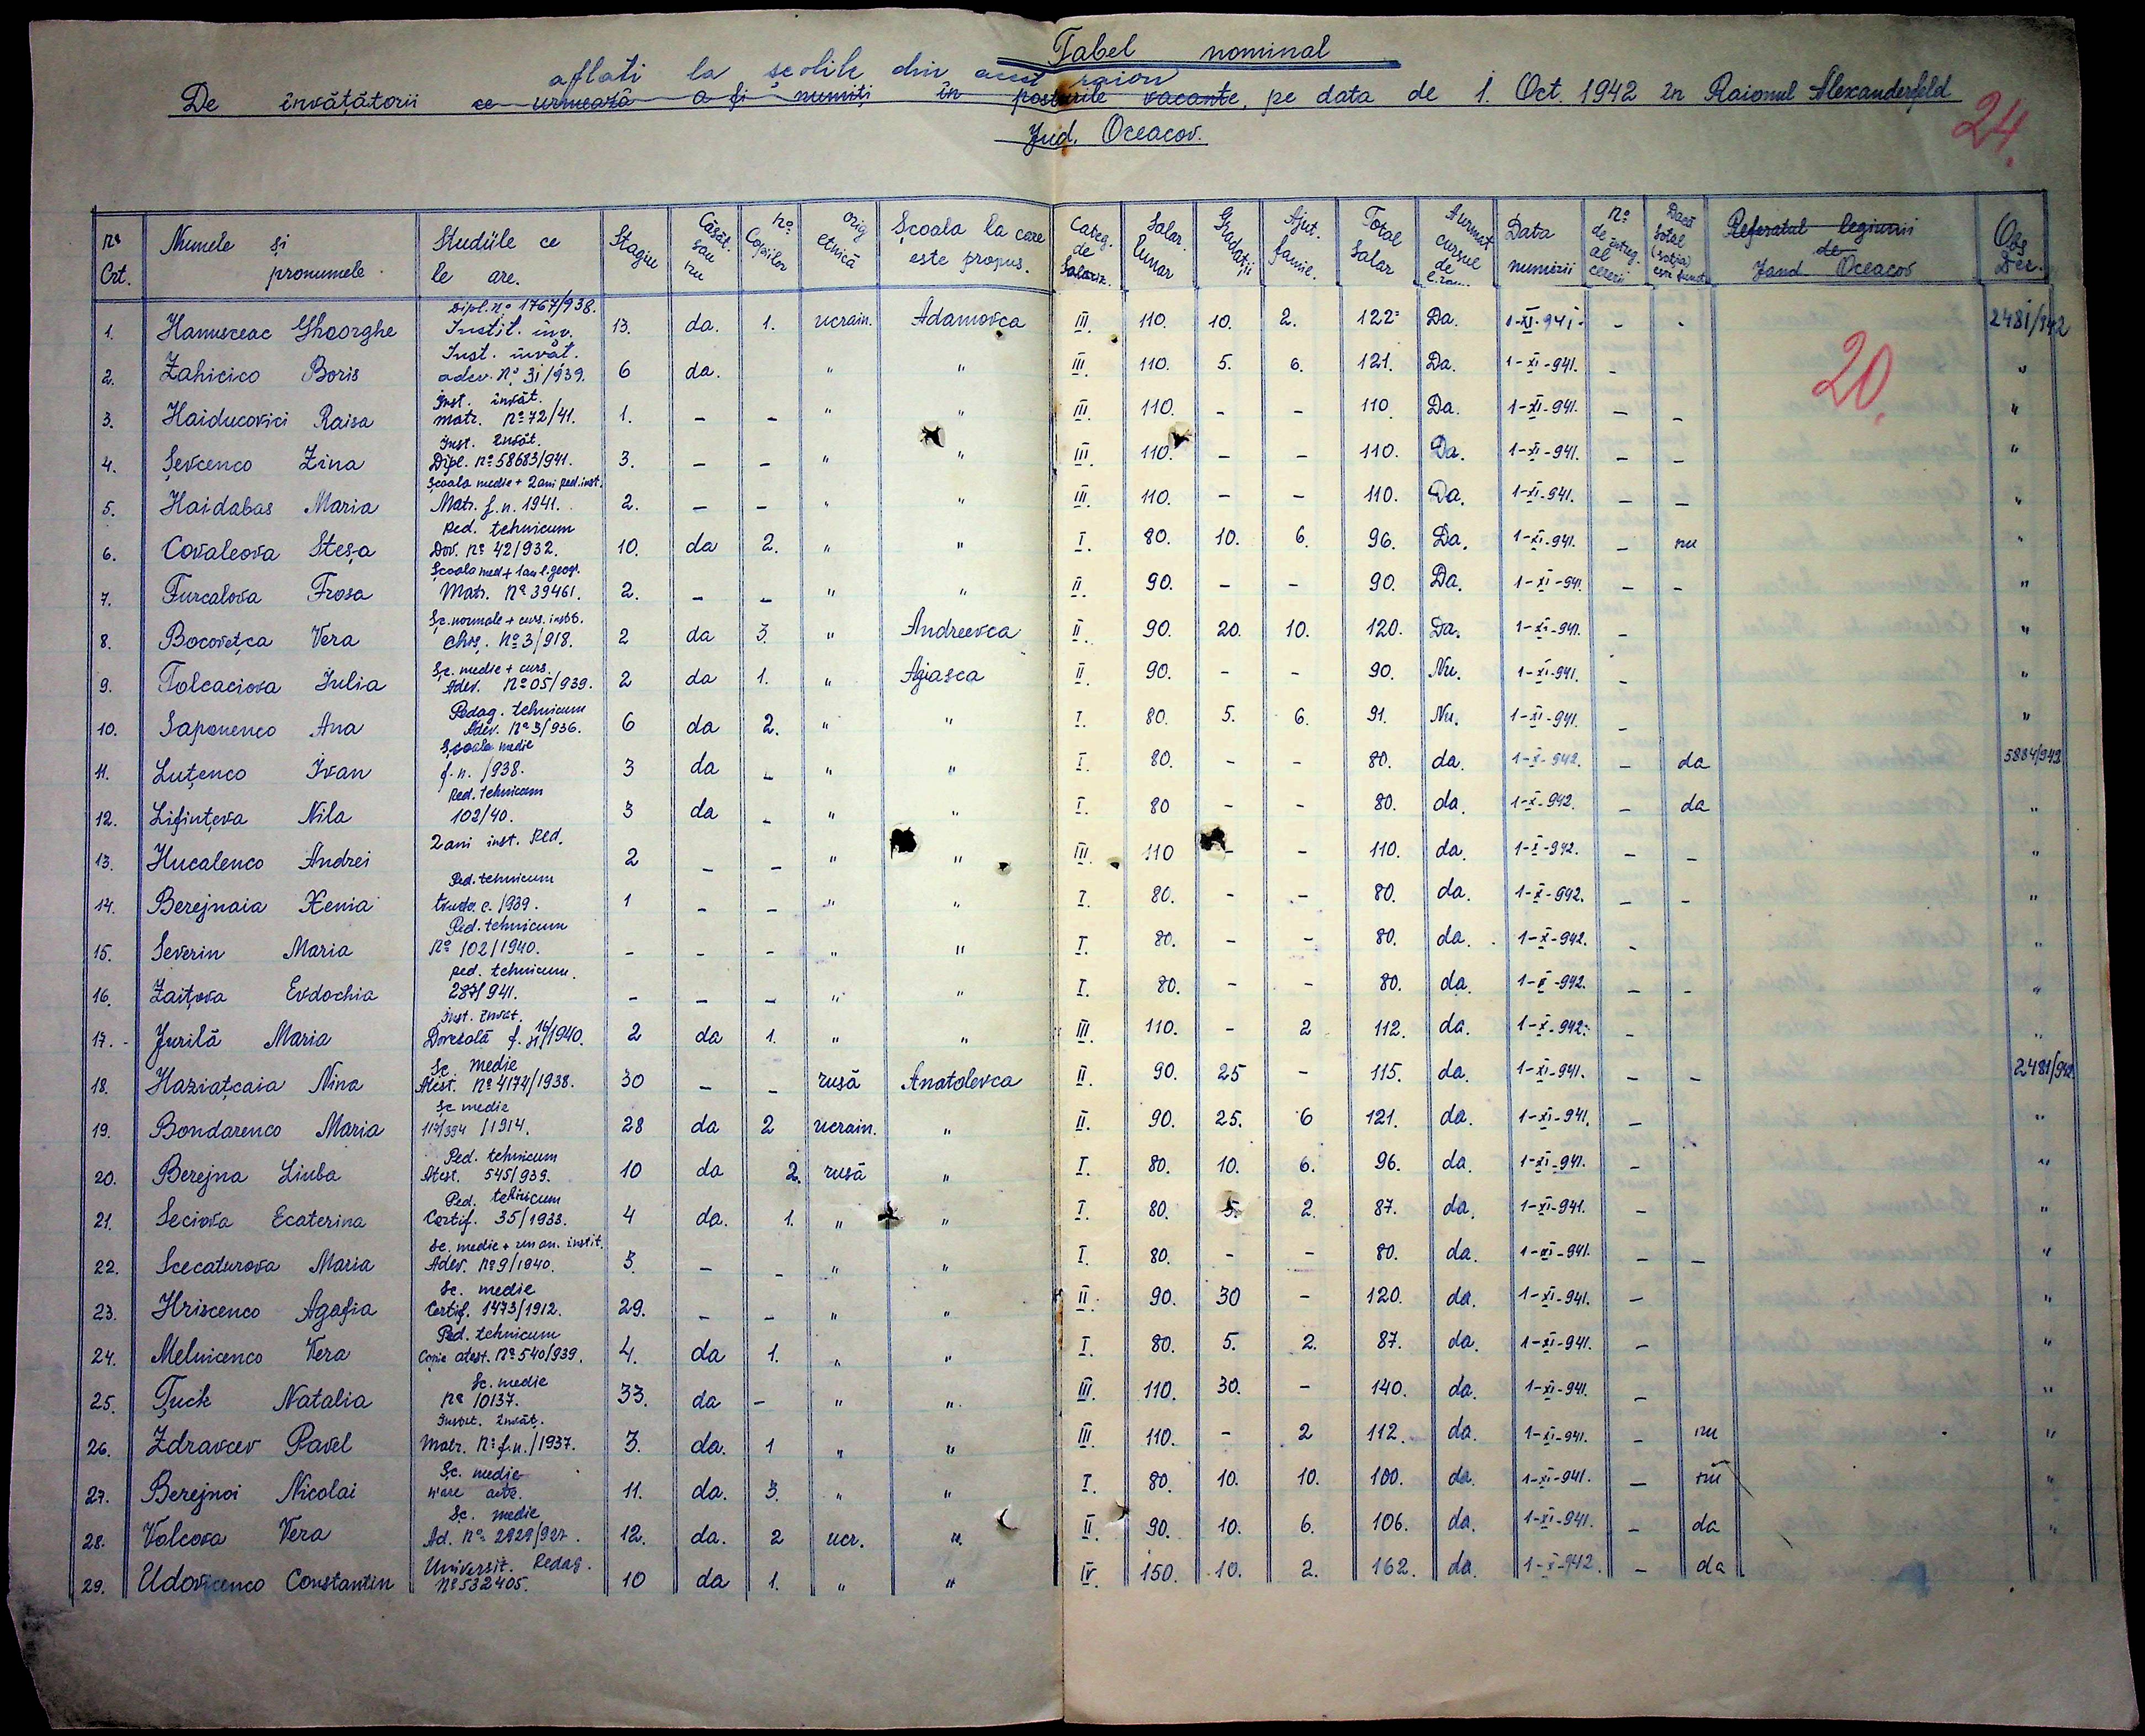 Tabel nominal
aflati la școlile din acest raion
De învățătorii ce urmează a fi numiți în posturile vacante, pe data de 1. Oct. 1942 în Raionul Alexanderfeld
Jud. Oceacov.
24.
No Crt. | Numele și pronumele | Studiile ce le are. | Stagiu | Căsăt. sau nu | No Copiilor | Orig etnică | Școala la care este propus. | Categ. de Salariz. | Salar. lunar | Gradații | Ajut. famil. | Total Salar | A urmat cursul de | Data numirii | No de intreg. al cererii | Dacă sotul (sotia) | Referatul legiunii de Jand Oceacov | Obs Dec.
20.
1. Hamusceac Gheorghe | Dipl. No 1767/938. Instit. înv. | 13. | da. | 1. | ucrain. | Adamovca | III. | 110. | 10. | 2. | 122 | Da. | 1-XI-941 | - | - | 2481/942
2. Zahicico Boris | Inst. învăt. adev. No 31/939. | 6 | da. | " | " | III. | 110. | 5. | 6. | 121. | Da. | 1-XI-941. | - | "
3. Haiducovici Raisa | Inst. învăt. matr. No 72/41. | 1. | - | - | " | " | III. | 110. | - | - | 110 | Da. | 1-XI-941. | - | - | "
4. Șevcenco Zina | Inst. învăt. Dipl. No 58683/941. | 3. | - | - | " | " | III. | 110. | - | - | 110. | Da. | 1-XI-941. | - | - | "
5. Haidabas Maria | Școala medie + 2 ani ped. inst. Matr. f.n. 1941. | 2. | - | - | " | " | III. | 110. | - | - | 110. | Da. | 1-XI-941. | - | - | "
6. Covaleova Steșa | Ped. tehnicum Dov. No 42/932. | 10. | da | 2. | " | " | I. | 80. | 10. | 6. | 96. | Da. | 1-XI-941. | - | nu | "
7. Furcalova Frosa | Școala med + 1 an f. geogr. Matr. No 39461. | 2. | - | - | " | " | II. | 90. | - | - | 90. | Da. | 1-XI-941 | - | - | "
8. Bocovețca Vera | Șc. normale + curs. instit. No 3/918. | 2 | da | 3. | " | Andreevca | II. | 90. | 20. | 10. | 120. | Da. | 1-XI-941. | - | "
9. Tolcaciova Iulia | Șc. medie + curs. Adev. No 05/939. | 2 | da | 1. | " | Agiasca | II. | 90. | - | - | 90. | Nu. | 1-XI-941. | - | "
10. Saponenco Ana | Pedag. tehnicum Adev. No 3/936. | 6 | da | 2. | " | " | I. | 80. | 5. | 6. | 91. | Nu. | 1-XI-941. | - | "
11. Luțenco Ivan | Școala medie f.n. /938. | 3 | da | - | " | " | I. | 80. | - | - | 80. | da. | 1-X-942. | - | da | 5884/942
12. Lifințeva Nila | Ped. tehnicum 102/40. | 3 | da | - | " | " | I. | 80 | - | - | 80. | da. | 1-X-942. | - | da | "
13. Hucalenco Andrei | 2 ani inst. Ped. | 2 | - | - | " | " | III. | 110 | - | - | 110. | da. | 1-X-942. | - | - | "
14. Berejnaia Xenia | Ped. tehnicum c. 1939. | 1 | - | - | " | " | I. | 80. | - | - | 80. | da. | 1-X-942. | - | - | "
15. Severin Maria | Ped. tehnicum No 102/1940. | - | - | - | " | " | I. | 80. | - | - | 80. | da. | 1-X-942. | - | "
16. Zaițova Evdochia | Ped. tehnicum. 287/941. | - | - | - | " | " | I. | 80. | - | - | 80. | da. | 1-X-942. | - | - | "
17. Jurilă Maria | Inst. învăt. Dovezală f. 16/XI/1940. | 2 | da | 1. | " | " | III. | 110. | - | 2 | 112. | da. | 1-X-942. | - | "
18. Haziațcaia Nina | Șc. medie Atest. No 4174/1938. | 30 | - | - | rusă | Anatolevca | II. | 90. | 25 | - | 115. | da. | 1-XI-941. | - | - | 2481/942.
19. Bondarenco Maria | Șc medie 117/394 /1914. | 28 | da | 2 | ucrain. | " | II. | 90. | 25. | 6 | 121. | da. | 1-XI-941. | - | "
20. Berejna Liuba | Ped. tehnicum Atest. 545/939. | 10 | da | 2. | rusă | " | I. | 80. | 10. | 6. | 96. | da. | 1-XI-941. | - | "
21. Seciova Ecaterina | Ped. tehnicum Certif. 35/1933. | 4 | da. | 1. | " | " | I. | 80. | 5. | 2. | 87. | da. | 1-XI-941. | - | "
22. Scecaturova Maria | Șc. medie + un an. instit. Adev. No 9/1940. | 3. | - | - | " | " | I. | 80. | - | - | 80. | da. | 1-XI-941. | - | - | "
23. Hriscenco Agafia | Sc. medie Certif. 1473/1912. | 29. | - | - | " | " | II. | 90. | 30 | - | 120. | da. | 1-XI-941. | - | "
24. Melnicenco Vera | Ped. tehnicum Copie atest. No 540/939. | 4. | da | 1. | " | " | I. | 80. | 5. | 2. | 87. | da. | 1-XI-941. | - | "
25. Țuck Natalia | Sc. medie No 10137. | 33. | da | - | " | " | III. | 110. | 30. | - | 140. | da. | 1-XI-941. | - | "
26. Zdravcev Pavel | Instit. învăt. Matr. No f.n./1937. | 3. | da. | 1 | " | " | III. | 110. | - | 2 | 112. | da. | 1-XI-941. | - | nu | "
27. Berejnoi Nicolai | Sc. medie n'are | 11. | da. | 3. | " | " | I. | 80. | 10. | 10. | 100. | da. | 1-XI-941. | - | nu | "
28. Volcova Vera | Sc. medie Ad. No 2929/927. | 12. | da. | 2 | ucr. | " | II. | 90. | 10. | 6. | 106. | da. | 1-XI-941. | - | da | "
29. Udovicenco Constantin | Universit. Pedag. No 532405. | 10 | da | 1. | " | " | IV. | 150. | 10. | 2. | 162. | da. | 1-X-942. | - | da